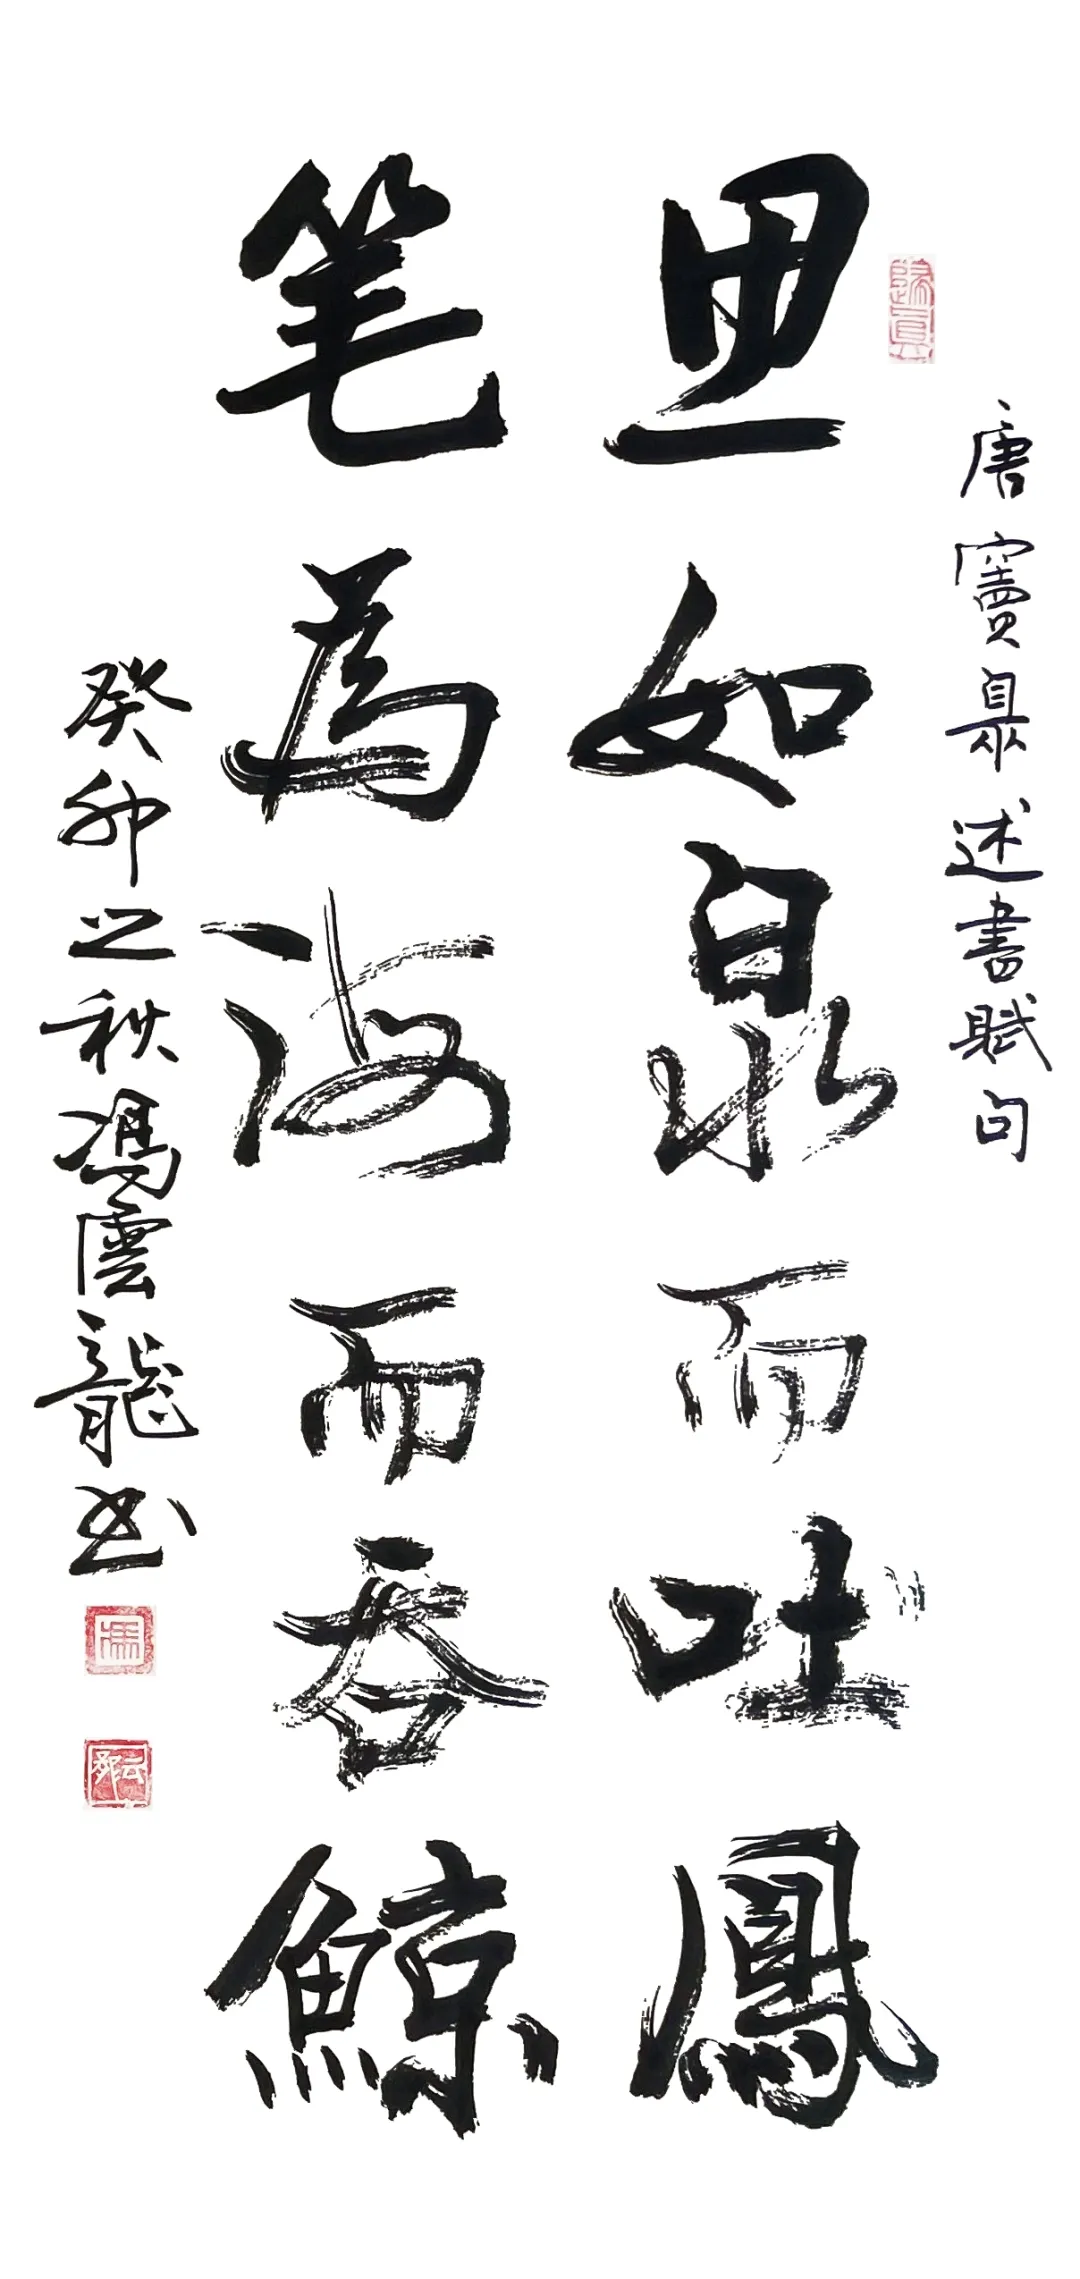 唐竇臮述書賦句
思如泉而吐鳳
笔為海而吞鯨
癸卯之秋馮雲龍书
馮